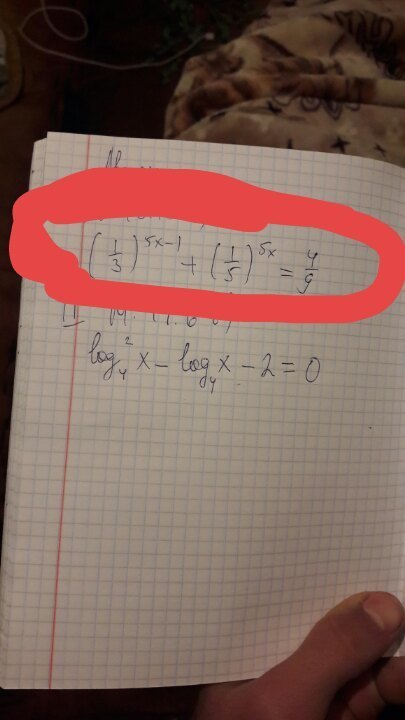 (1/3)^(5x-1) + (1/5)^(5x) = 4/9
II
log₄² x - log₄ x - 2 = 0